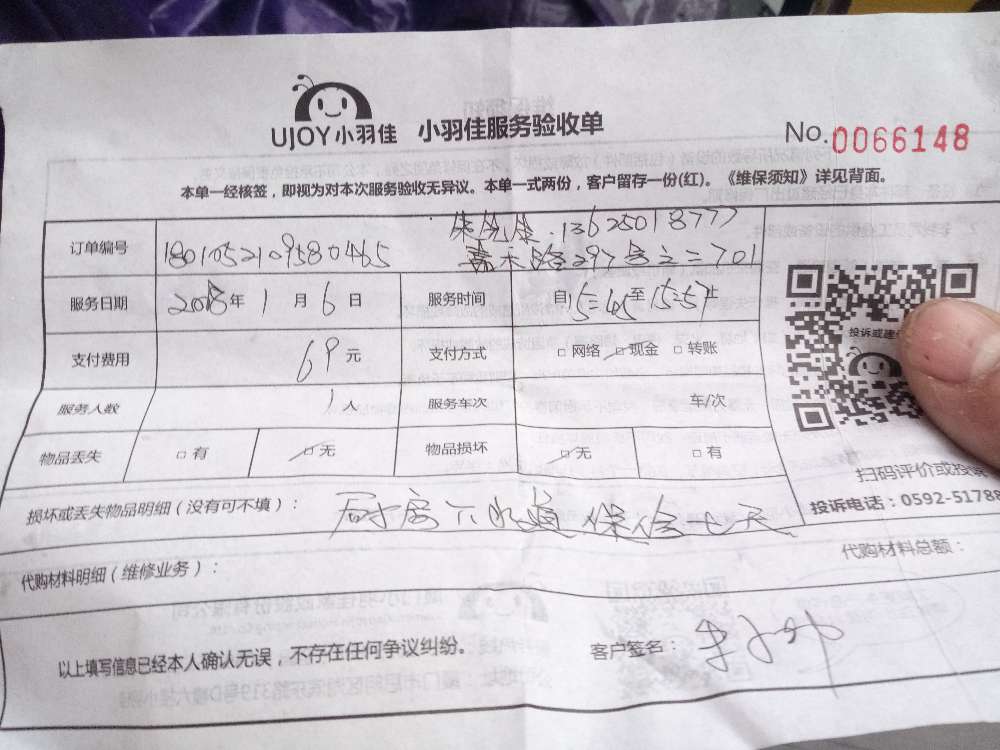 UJOY小羽佳 小羽佳服务验收单
No. 0066148
本单一经核签，即视为对本次服务验收无异议。本单一式两份，客户留存一份(红)。《维保须知》详见背面。
朱先生 13625018777
订单编号 1801052109580465 嘉禾路297号之二701
服务日期 2018年 1 月 6 日 服务时间 自15:45至15:57止
支付费用 69元 支付方式 □ 网络 □ 现金 □ 转账
投诉或建
服务人数 1人 服务车次 车/次
物品丢失 □ 有 □ 无 物品损坏 □ 无 □ 有
扫码评价或投诉
损坏或丢失物品明细（没有可不填）： 厨房下水道保修七天
投诉电话：0592-51788
代购材料明细（维修业务）： 代购材料总额：
以上填写信息已经本人确认无误，不存在任何争议纠纷。 客户签名：